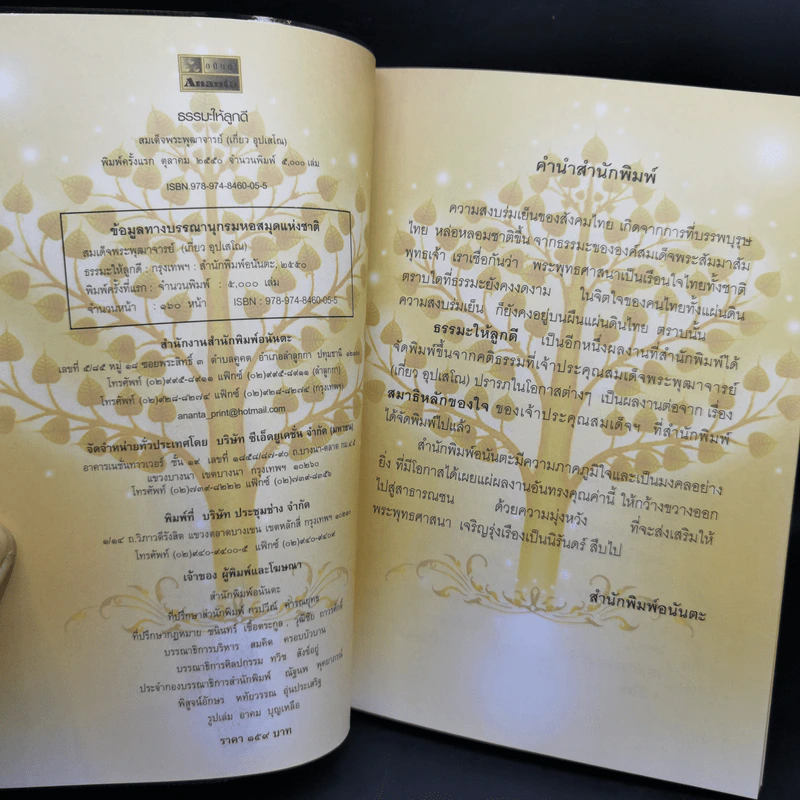 อนันตะ
Ananta
ธรรมะให้ลูกดี
สมเด็จพระพุฒาจารย์ (เกี่ยว อุปเสโณ)
พิมพ์ครั้งแรก ตุลาคม ๒๕๕๐ จำนวนพิมพ์ ๕,๐๐๐ เล่ม
ISBN.978-974-8460-05-5
ข้อมูลทางบรรณานุกรมหอสมุดแห่งชาติ
สมเด็จพระพุฒาจารย์ (เกี่ยว อุปเสโณ)
ธรรมะให้ลูกดี : กรุงเทพฯ : สำนักพิมพ์อนันตะ, ๒๕๕๐
พิมพ์ครั้งที่แรก : จำนวนพิมพ์ : ๕,๐๐๐ เล่ม
จำนวนหน้า : ๑๖๐ หน้า ISBN : 978-974-8460-05-5
สำนักงานสำนักพิมพ์อนันตะ
เลขที่ ๕/๘๕ หมู่ ๑๘ ซอยพระสิทธิ์ ๓ ตำบลคูคต อำเภอลำลูกกา ปทุมธานี
โทรศัพท์ (๐๒)๙๙๕-๘๙๑๑ แฟ๊กซ์ (๐๒)๙๙๕-๘๙๑๑ (ลำลูกกา)
โทรศัพท์ (๐๒)๙๒๘-๘๒๗๔ แฟ๊กซ์ (๐๒)๙๒๘-๘๒๗๕ (กรุงเทพฯ)
ananta_print@hotmail.com
จัดจำหน่ายทั่วประเทศโดย บริษัท ซีเอ็ดยูเคชั่น จำกัด (มหาชน)
อาคารเนชั่นทาวเวอร์ ชั้น ๑๙ เลขที่ ๑๘๕๘/๘๗-๙๐ ถ.บางนา-ตราด กม.๔.๕
แขวงบางนา เขตบางนา กรุงเทพฯ ๑๐๒๖๐
โทรศัพท์ (๐๒)๗๓๙-๘๒๒๒ แฟ๊กซ์ (๐๒)๗๓๙-๘๓๕๖
พิมพ์ที่ บริษัท ประชุมช่าง จำกัด
๑/๑๔ ถ.วิภาวดีรังสิต แขวงตลาดบางเขน เขตหลักสี่ กรุงเทพฯ ๑๐๒๑๐
โทรศัพท์ (๐๒)๙๔๐-๙๔๐๐-๕ แฟ๊กซ์ (๐๒)๙๔๐-๙๔๐๔
เจ้าของ ผู้พิมพ์และโฆษณา
สำนักพิมพ์อนันตะ
ที่ปรึกษาสำนักพิมพ์
ที่ปรึกษากฎหมาย ชนินทร์ เชื้อตระกูล,
บรรณาธิการบริหาร สมคิด ครอบบัวบาน
บรรณาธิการศิลปกรรม ทวีช สังข์อยู่
ประจำกองบรรณาธิการสำนักพิมพ์ ณัฐนพ
พิสูจน์อักษร หทัยวรรณ อุ่นประเสริฐ
รูปเล่ม อาคม บุญเหลือ
ราคา ๑๕๙ บาท
คำนำสำนักพิมพ์
ความสงบร่มเย็นของสังคมไทย เกิดจากการที่บรรพบุรุษ
ไทย หล่อหลอมชาติขึ้น จากธรรมะขององค์สมเด็จพระสัมมาสัม
พุทธเจ้า เราเชื่อกันว่า พระพุทธศาสนาเป็นเรือนใจไทยทั้งชาติ
ตราบใดที่ธรรมะยังคงงดงาม ในจิตใจของคนไทยทั้งแผ่นดิน
ความสงบร่มเย็น ก็ยังคงอยู่บนผืนแผ่นดินไทย ตราบนั้น
ธรรมะให้ลูกดี เป็นอีกหนึ่งผลงานที่สำนักพิมพ์ได้
จัดพิมพ์ขึ้นจากคติธรรมที่เจ้าประคุณสมเด็จพระพุฒาจารย์
(เกี่ยว อุปเสโณ) ปรารภในโอกาสต่างๆ เป็นผลงานต่อจาก เรื่อง
สมาธิหลักของใจ ของเจ้าประคุณสมเด็จฯ ที่สำนักพิมพ์
ได้จัดพิมพ์ไปแล้ว
สำนักพิมพ์อนันตะมีความภาคภูมิใจและเป็นมงคลอย่าง
ยิ่ง ที่มีโอกาสได้เผยแผ่ผลงานอันทรงคุณค่านี้ ให้กว้างขวางออก
ไปสู่สาธารณชน ด้วยความมุ่งหวัง ที่จะส่งเสริมให้
พระพุทธศาสนา เจริญรุ่งเรืองเป็นนิรันดร์ สืบไป
สำนักพิมพ์อนันตะ